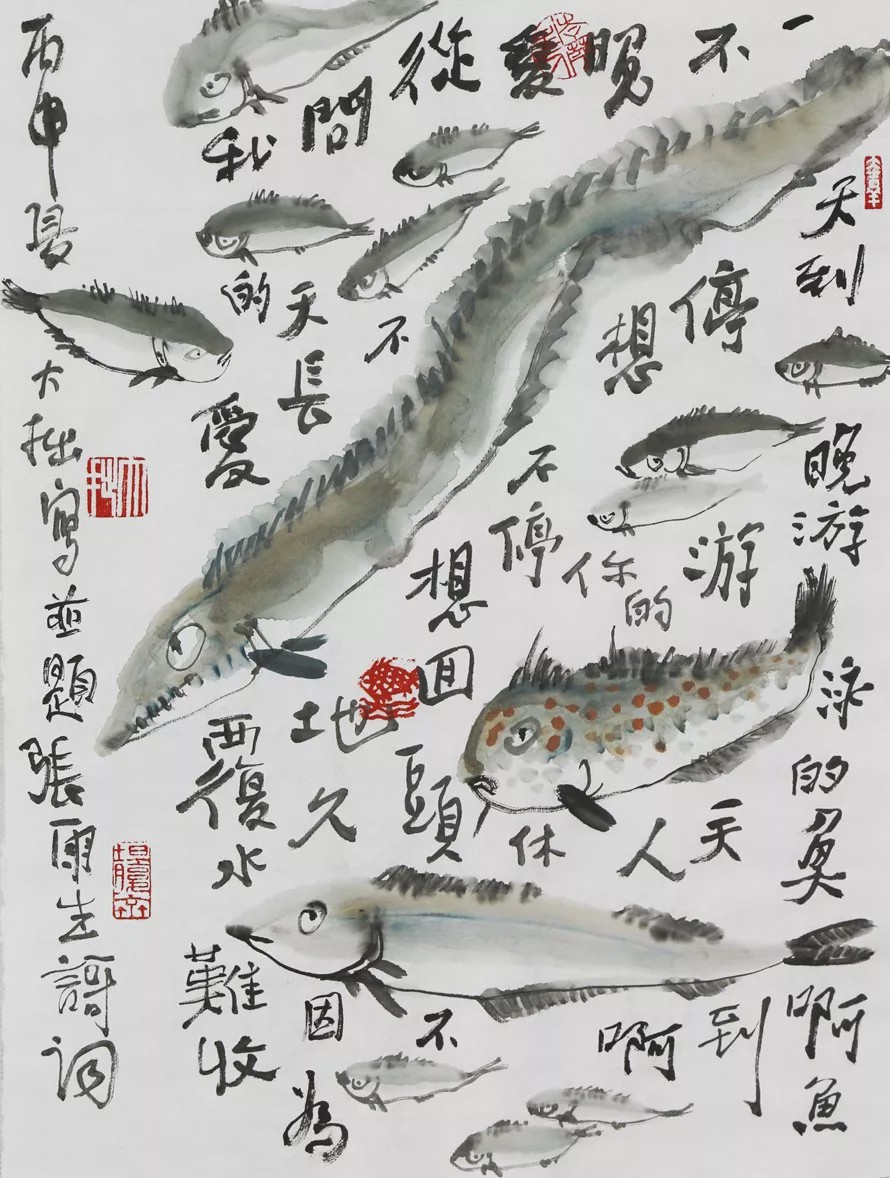 一天到晚游泳的魚啊魚
不停游天到
晚想你的人啊
愛不停休
從不想囬頭不
問天長地久因為
我的愛覆水難收
丙申夏大拙寫並題張雨生謌詞
大拙